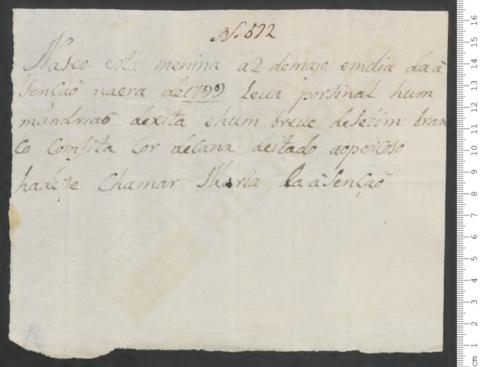 N. 592
Nasco esta menina a 2 demajo emdia daã
senção naera de 1799 leua porsinal hum
mandriaõ dexita ehum breue desetim bran
co Comfita Cor decana deitado aopescoso
hadese Chamar Maria da aSenção